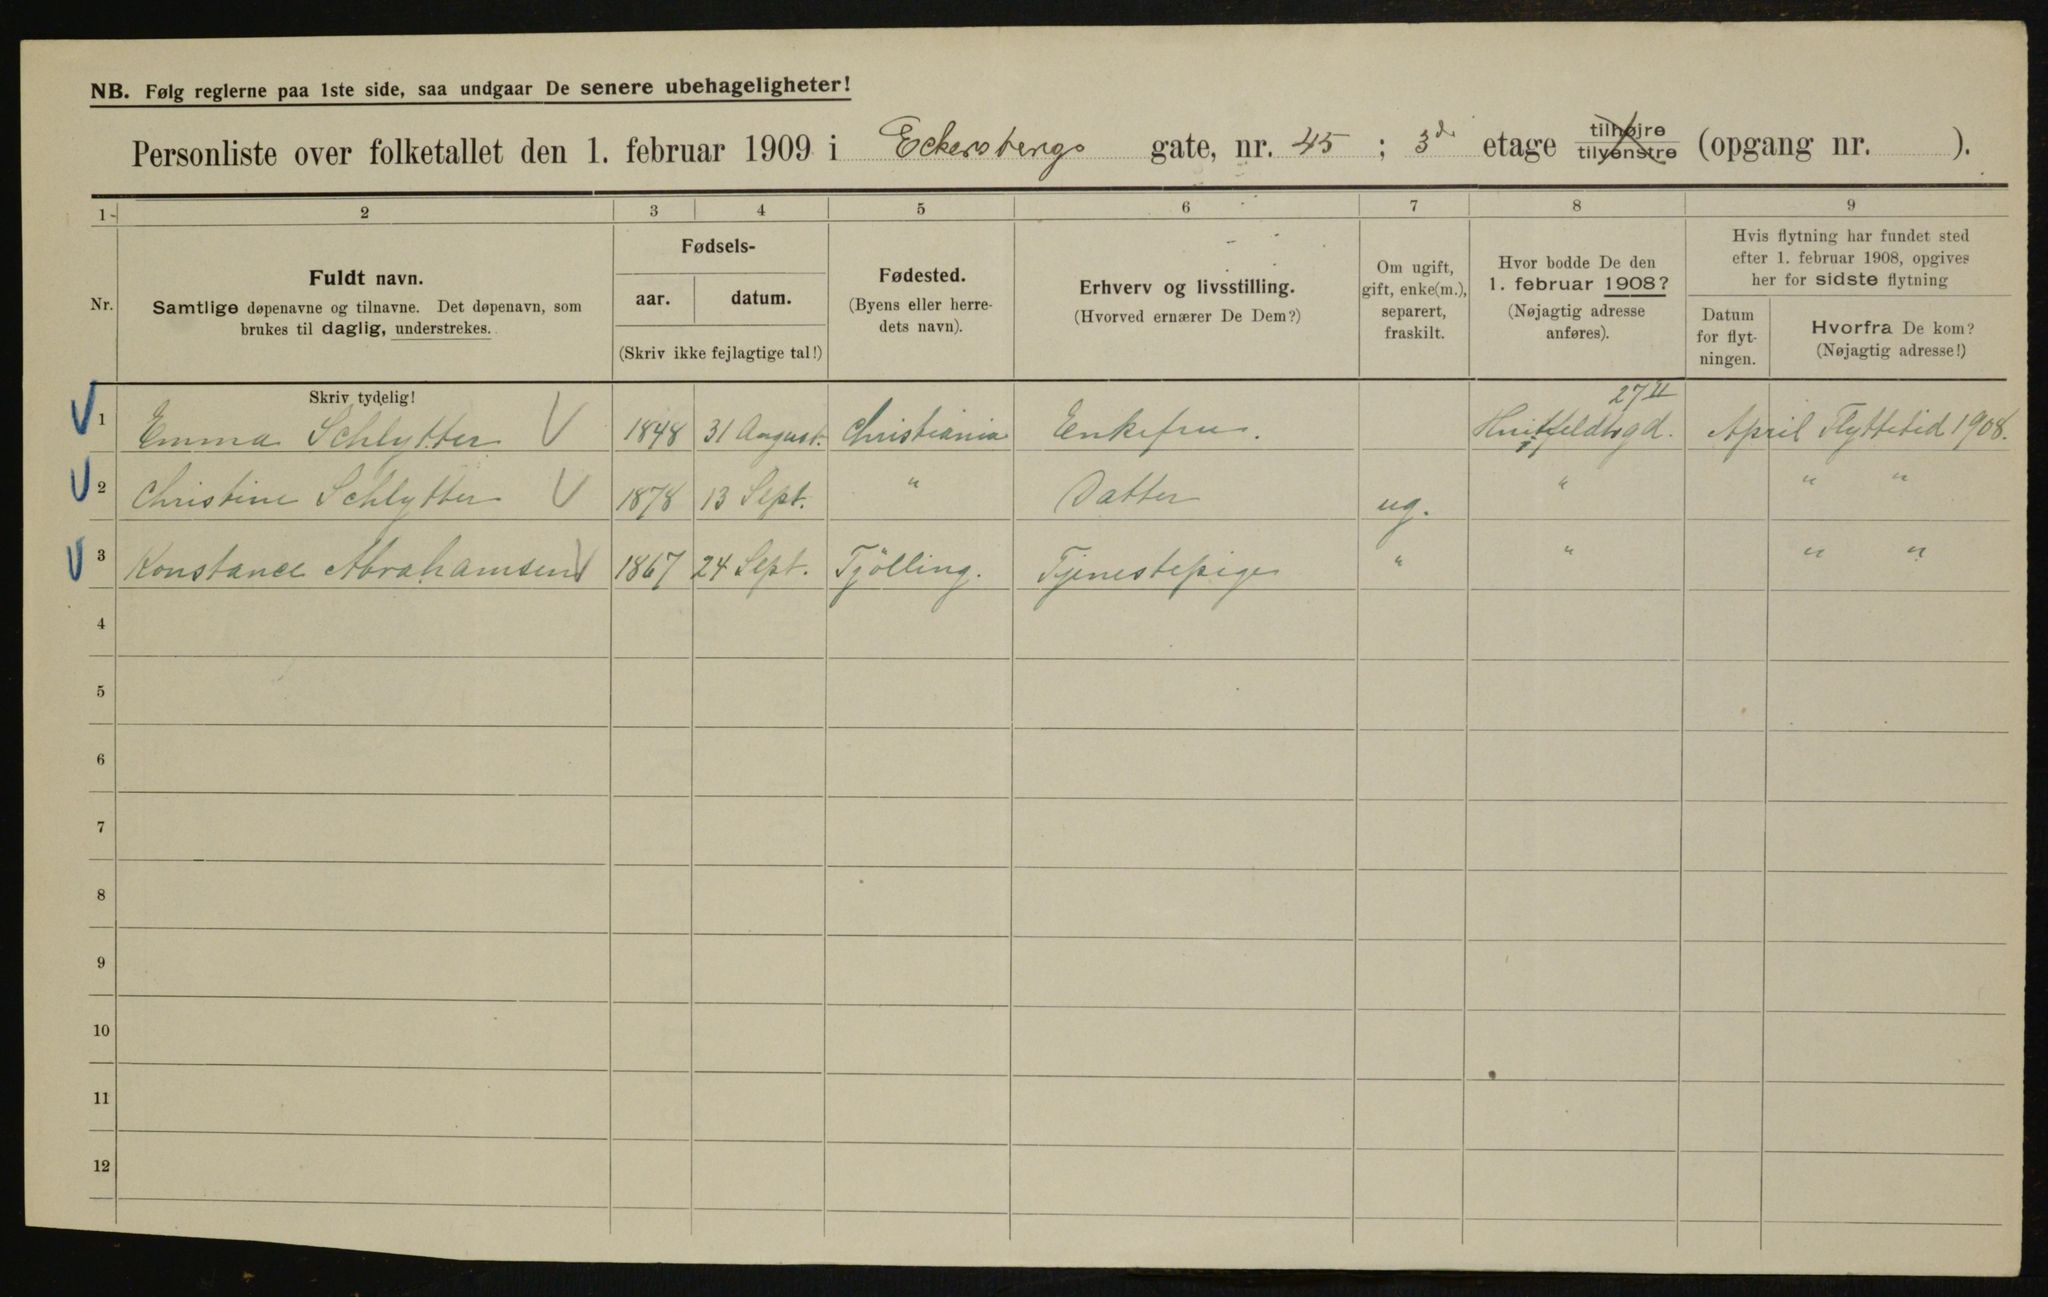 NB. Følg reglerne paa 1ste side, saa undgaar De senere ubehageligheter!
Personliste over folketallet den 1. februar 1909 i Eckersbergs gate, nr. 45 ; 3d. etage tilhøjre tilvenstre (opgang nr. ).
1 2 3 4 5 6 7 8 9
Nr.
Fuldt navn.
Samtlige døpenavne og tilnavne. Det døpenavn, som
brukes til daglig, understrekes.
Skriv tydelig!
Fødsels-
aar. datum.
(Skriv ikke fejlagtige tal!)
Fødested.
(Byens eller herre-
dets navn).
Erhverv og livsstilling.
(Hvorved ernærer De Dem?)
Om ugift,
gift, enke(m.),
separert,
fraskilt.
Hvor bodde De den
1. februar 1908?
(Nøjagtig adresse
anføres).
Hvis flytning har fundet sted
efter 1. februar 1908, opgives
her for sidste flytning
Datum
for flyt-
ningen.
Hvorfra De kom?
(Nøjagtig adresse!)
27 II
1 Emma Schlytter 1848 31 August. Christiania Enkefru. Huitfeldtsgd. April Flyttetid 1908.
2 Christine Schlytter 1878 13 Sept. " Datter ug. " " "
3 Konstance Abrahamsen 1867 24 Sept. Tjölling. Tjenestepige " " " "
4
5
6
7
8
9
10
11
12